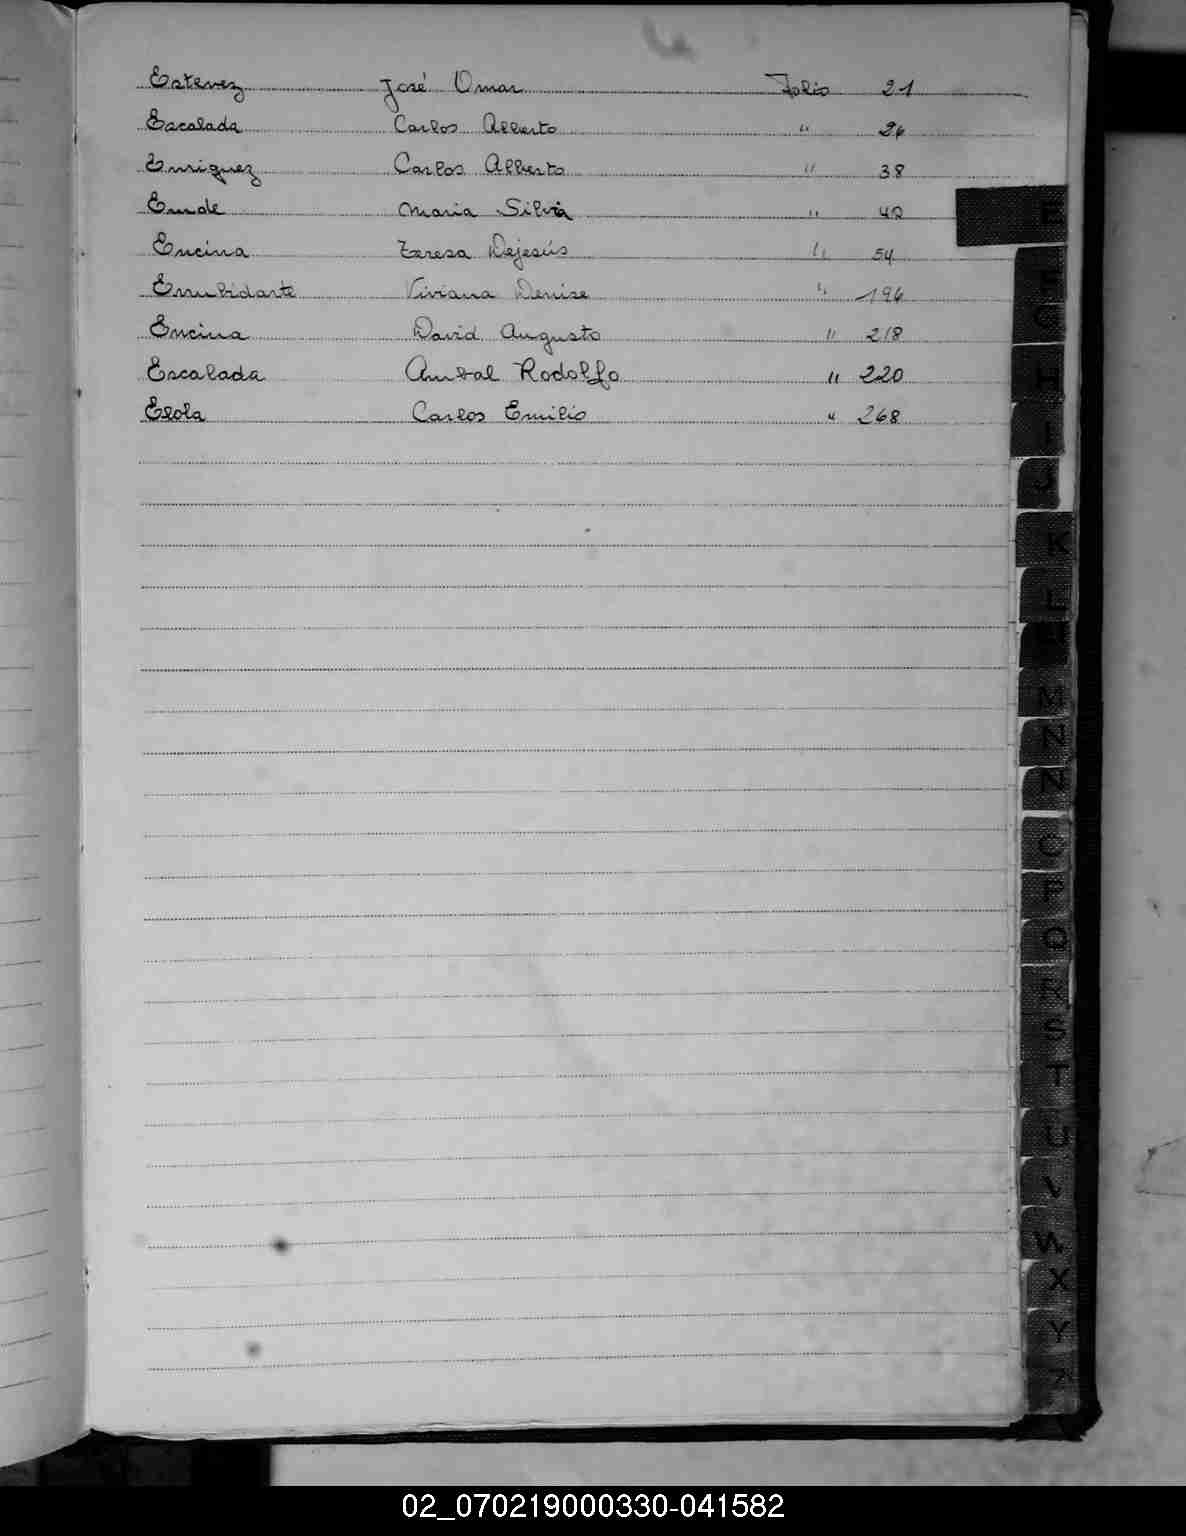 Estevez José Omar Folio 21
Escalada Carlos Alberto " 26
Enriquez Carlos Alberto " 38
Emde Maria Silvia " 40
Encina Teresa Dejesús " 54
Viviana Denise " 196
Encina David Augusto " 218
Escalada Anibal Rodolfo " 220
Elola Carlos Emilio " 268
E
F
G
H
I
J
K
L
M
N
Ñ
O
P
Q
R
S
T
U
V
W
X
Y
Z
02_070219000330-041582